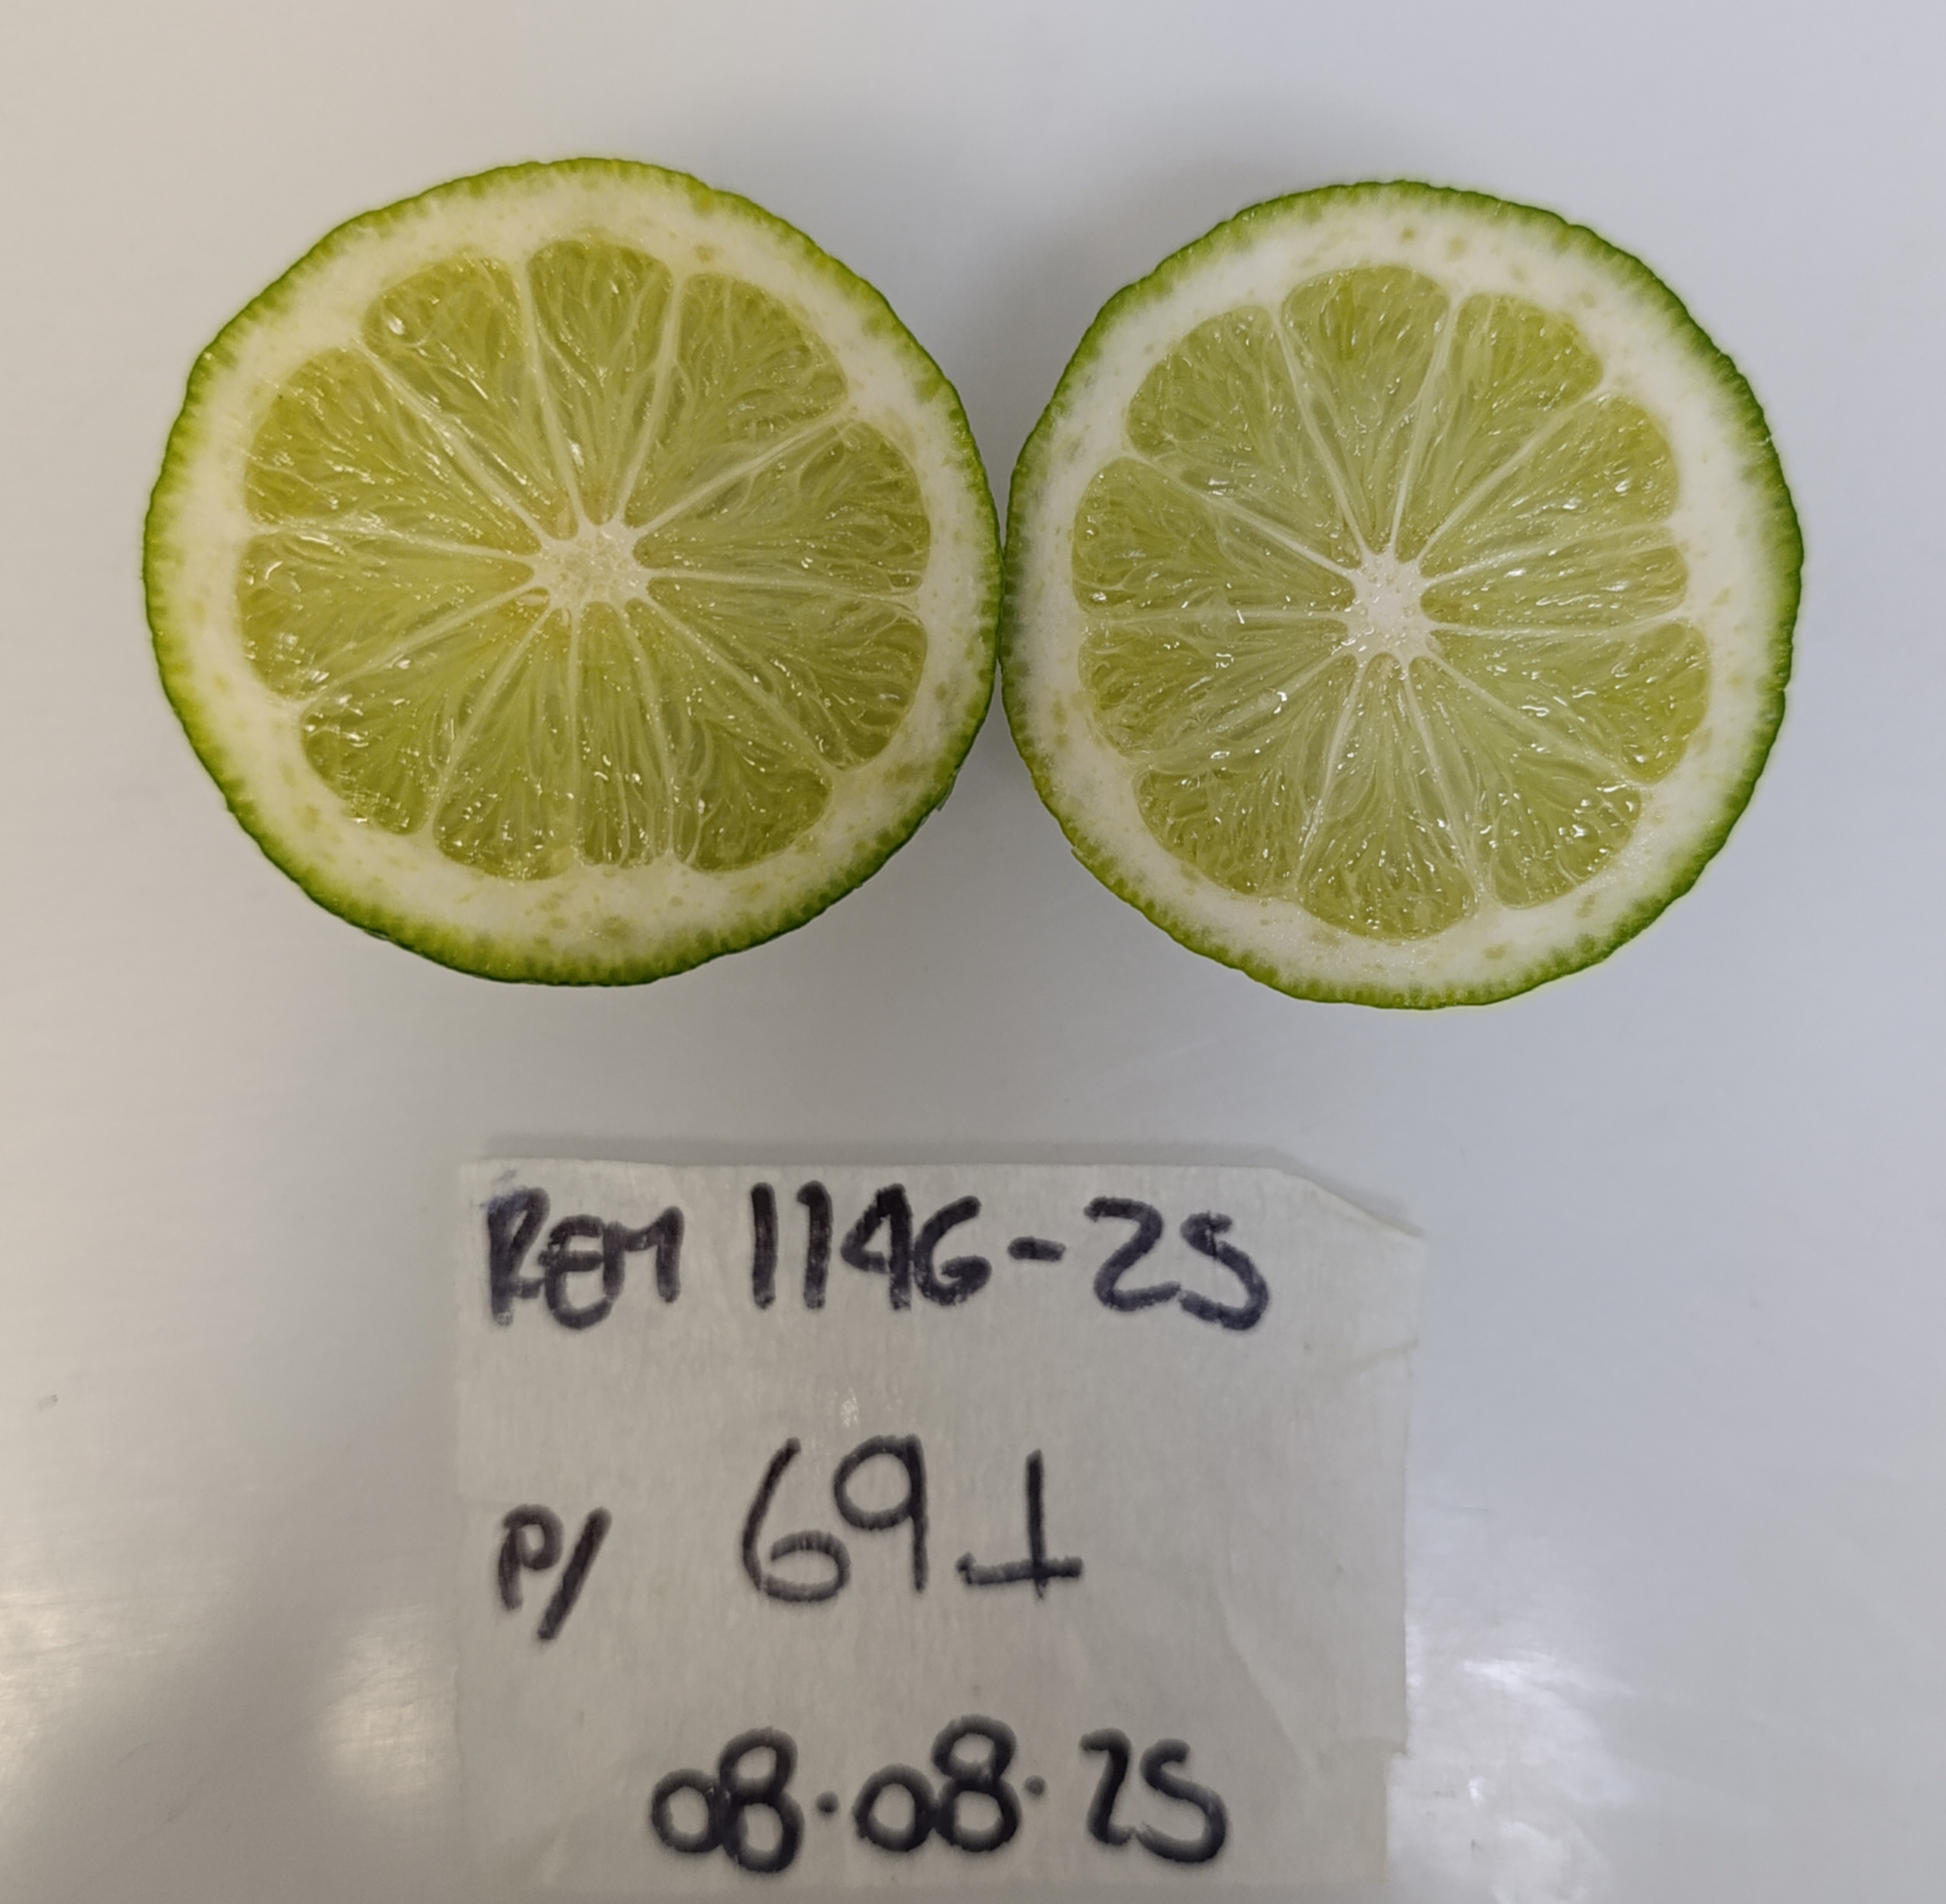 REM 1146-25
P/ 691
08.08.25